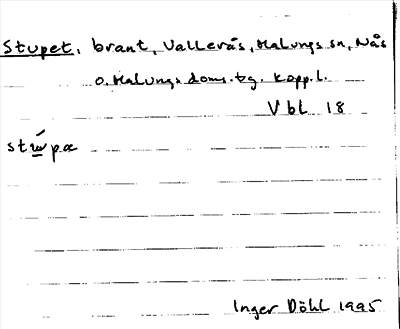 Stupet, brant, Vallerås, Malungs sn, Nås
o. Malungs doms. tg. Kopp. l.
Vbl 18
stúpæ
Inger Döhl 1995